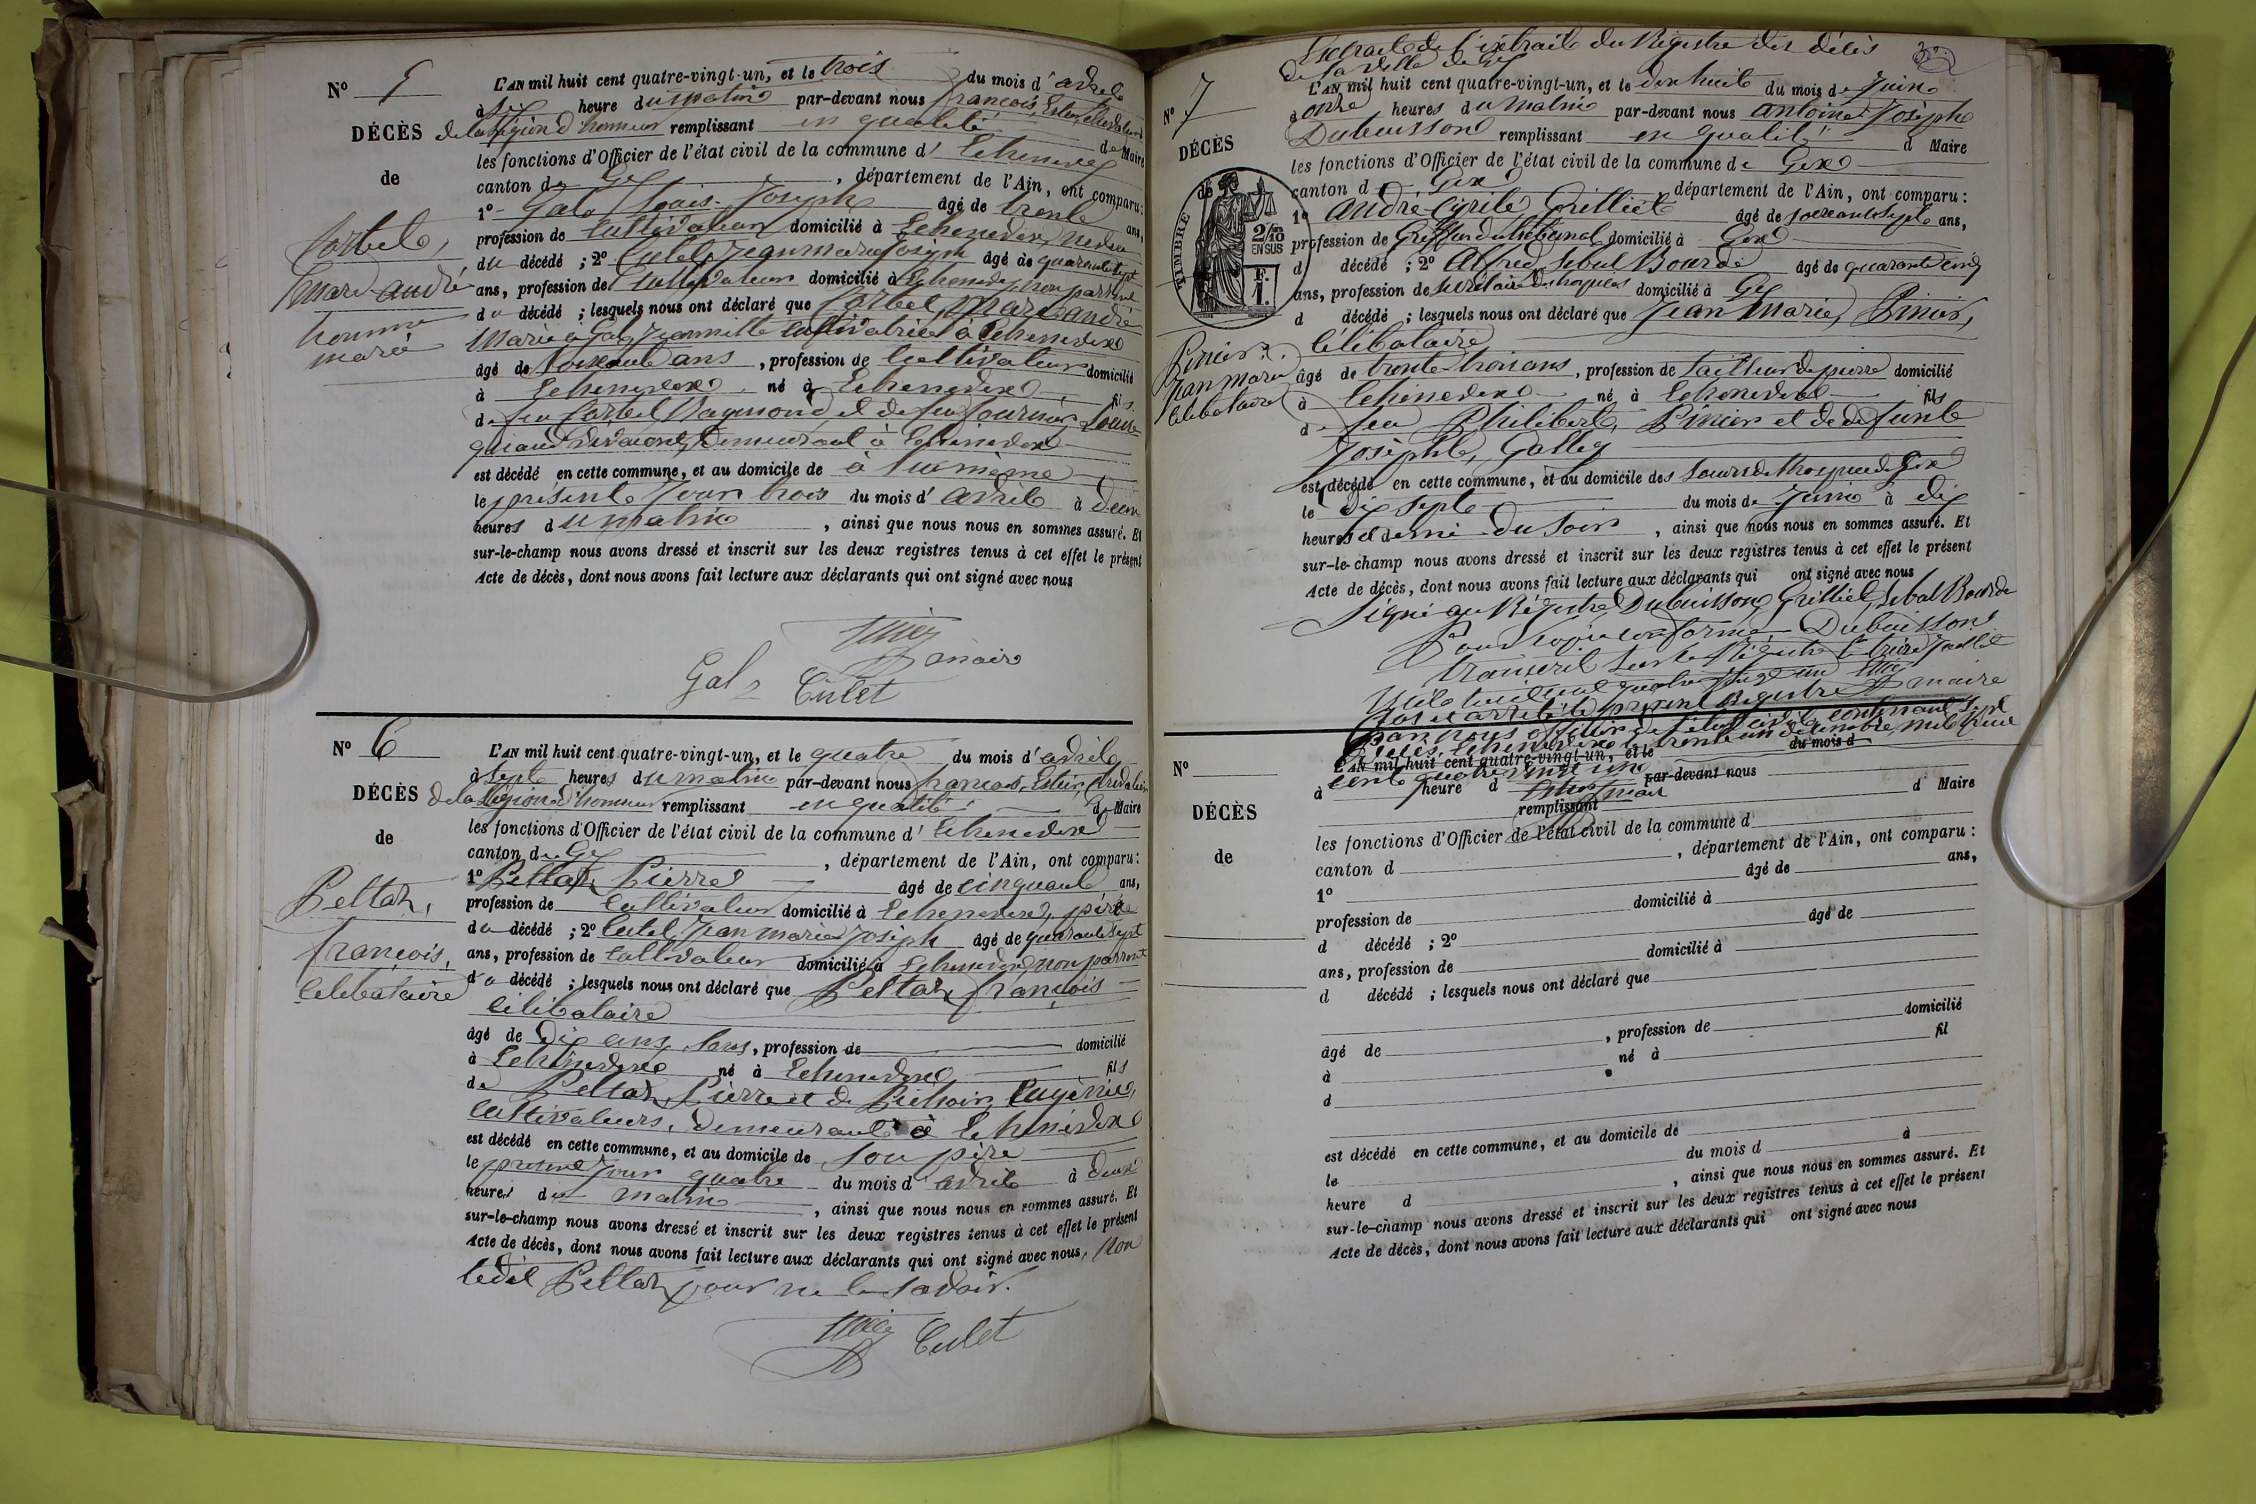 Nº 5
L'AN mil huit cent quatre-vingt-un, et le trois du mois d'avril
à six heure du matin par-devant nous françois, Estier, Chevalier
DÉCÈS de la légion d'honneur remplissant en qualité de Maire
les fonctions d'Officier de l'état civil de la commune d'Echenevex
de
canton de Gex, département de l'Ain, ont comparu:
1º Gal Joseph âgé de trente ans,
profession de Cultivateur domicilié à Echenevex, neveu
Corbet,
du décédé ; 2º Culet, Jean marie Joseph âgé de quarante sept
Marc-andré
ans, profession de Cultivateur domicilié à Echenevex, non parent
du décédé ; lesquels nous ont déclaré que Corbet Marc-andré
homme
marié
Marié à Gal, Jeannette cultivatrice à Echenevex
âgé de soixante ans, profession de Cultivateur domicilié
à Echenevex né à Echenevex fils
de feu Corbet Raymond et de feu fournier Louise
quand vivaient, demeurant à Echenevex
est décédé en cette commune, et au domicile de à lui même
le présent jour trois du mois d'avril à deux
heures du matin, ainsi que nous nous en sommes assuré. Et
sur-le-champ nous avons dressé et inscrit sur les deux registres tenus à cet effet le présent
Acte de décès, dont nous avons fait lecture aux déclarants qui ont signé avec nous
maire
Gal Culet
Nº 6
L'AN mil huit cent quatre-vingt-un, et le quatre du mois d'avril
à sept heures du matin par-devant nous françois, Estier, Chevalier
DÉCÈS de la légion d'honneur remplissant en qualité de Maire
les fonctions d'Officier de l'état civil de la commune d'Echenevex
de
canton de Gex, département de l'Ain, ont comparu:
1º Peltaz, Pierre âgé de cinquante ans,
Peltaz,
profession de Cultivateur domicilié à Echenevex, père
du décédé ; 2º Culet, Jean marie Joseph âgé de quarante sept
françois,
ans, profession de Cultivateur domicilié à Echenevex non parent
celibataire
du décédé ; lesquels nous ont déclaré que Peltaz, françois
célibataire
âgé de dix ans, sans, profession de domicilié
à Echenevex né à Echenevex fils
de Peltaz, Pierre et de Eugénie,
cultivateurs, demeurant à Echenevex
est décédé en cette commune, et au domicile de son père
le présent jour quatre du mois d'avril à deux
heures du matin, ainsi que nous nous en sommes assuré. Et
sur-le-champ nous avons dressé et inscrit sur les deux registres tenus à cet effet le présent
Acte de décès, dont nous avons fait lecture aux déclarants qui ont signé avec nous, non
ledit Peltaz, pour ne le savoir.
Culet
Extrait de l'extrait du Registre des décès
de la ville de Gex
Nº 7
L'AN mil huit cent quatre-vingt-un, et le dix huit du mois de Juin
à onze heures du matin par-devant nous antoine Joseph
DÉCÈS
Dubuisson remplissant en qualité d Maire
les fonctions d'Officier de l'état civil de la commune de Gex
de
canton d Gex département de l'Ain, ont comparu:
TIMBRE
2/10 EN SUS
F. 1.
1º andré Cyrile, Grilliet âgé de soixante sept ans,
profession de Greffier du tribunal domicilié à Gex
d décédé ; 2º Alfred, Sebal Bourde âgé de quarante cinq
ans, profession de domicilié à Gex
d décédé ; lesquels nous ont déclaré que Jean Marie, Pinier,
Pinier
Jean Marie
celibataire
célibataire
âgé de trente trois ans, profession de tailleur de pierre domicilié
à Echenevex né à Echenevex fils
de feu Philibert, Pinier et de défunte
Josephte, Galley
est décédé en cette commune, et au domicile des soeurs de de Gex
le dix sept du mois de Juin à dix
heures et demi du soir, ainsi que nous nous en sommes assuré. Et
sur-le-champ nous avons dressé et inscrit sur les deux registres tenus à cet effet le présent
Acte de décès, dont nous avons fait lecture aux déclarants qui ont signé avec nous
Signé au Régistre Dubuisson, Grilliet, Sebal Bourde
Pour copie conforme Dubuisson
transcrit sur le Régistre le treize Juillet
mil huit cent quatre vingt un
maire
Clos et arrêté le présent Registre
par nous officier de l'état civil contenant sept
décès. Echenevex le trente un décembre mil huit
cent quatre vingt un
maire
Nº
L'AN mil huit cent quatre-vingt-un, et le du mois d
à heure d par-devant nous
DÉCÈS
remplissant d Maire
les fonctions d'Officier de l'état civil de la commune d
de
canton d , département de l'Ain, ont comparu:
1º âgé de ans,
profession de domicilié à
d décédé ; 2º âgé de
ans, profession de domicilié à
d décédé ; lesquels nous ont déclaré que
âgé de , profession de domicilié
à né à fil
d
est décédé en cette commune, et au domicile de
le du mois d à
heure d , ainsi que nous nous en sommes assuré. Et
sur-le-champ nous avons dressé et inscrit sur les deux registres tenus à cet effet le présent
Acte de décès, dont nous avons fait lecture aux déclarants qui ont signé avec nous